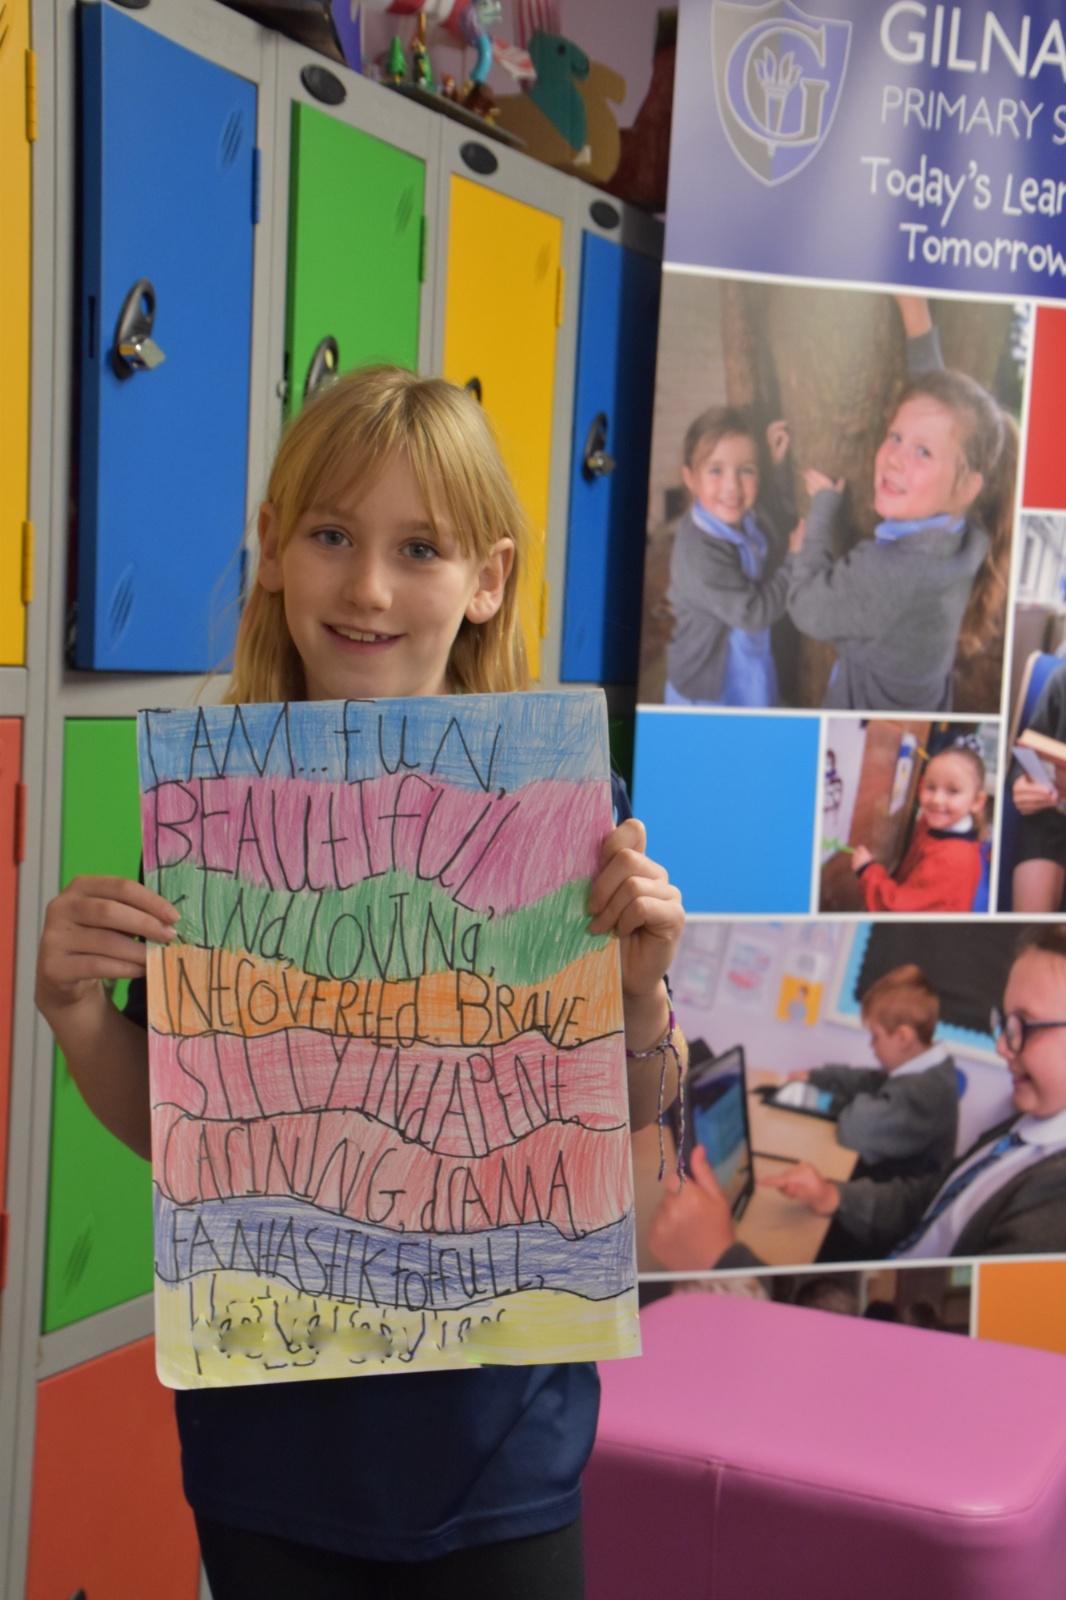 GILNA
PRIMARY S
Today's Lear
Tomorrow
G
I AM... fUN,
BEAUtIfUl,
KINd, lOVINg,
INtROVERtEd, BRAVE,
SILLY INdAPENt,
CARINING, dRAMA,
FANtAStIK fotfULL,